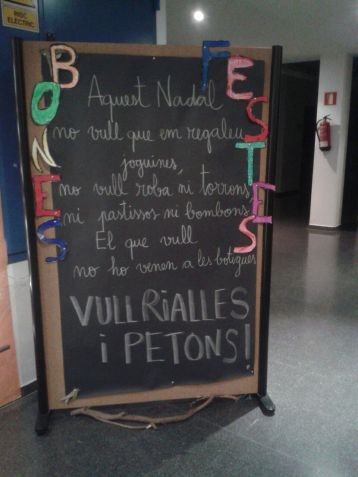 RISC
ELÈCTRIC
BONES
FESTES
Aquest Nadal
no vull que em regaleu
joguines,
no vull roba ni torrons,
ni pastissos ni bombons.
El que vull
no ho venen a les botigues
VULL RIALLES
i PETONS!